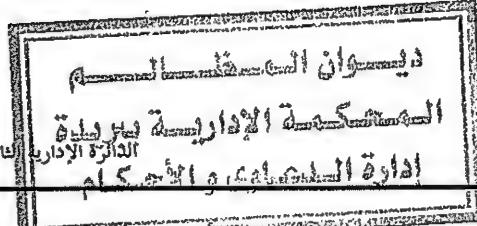 ديوان المظالم
المحكمة الإدارية ببريدة
الدائرة الإدارية
إدارة الدعاوى والأحكام